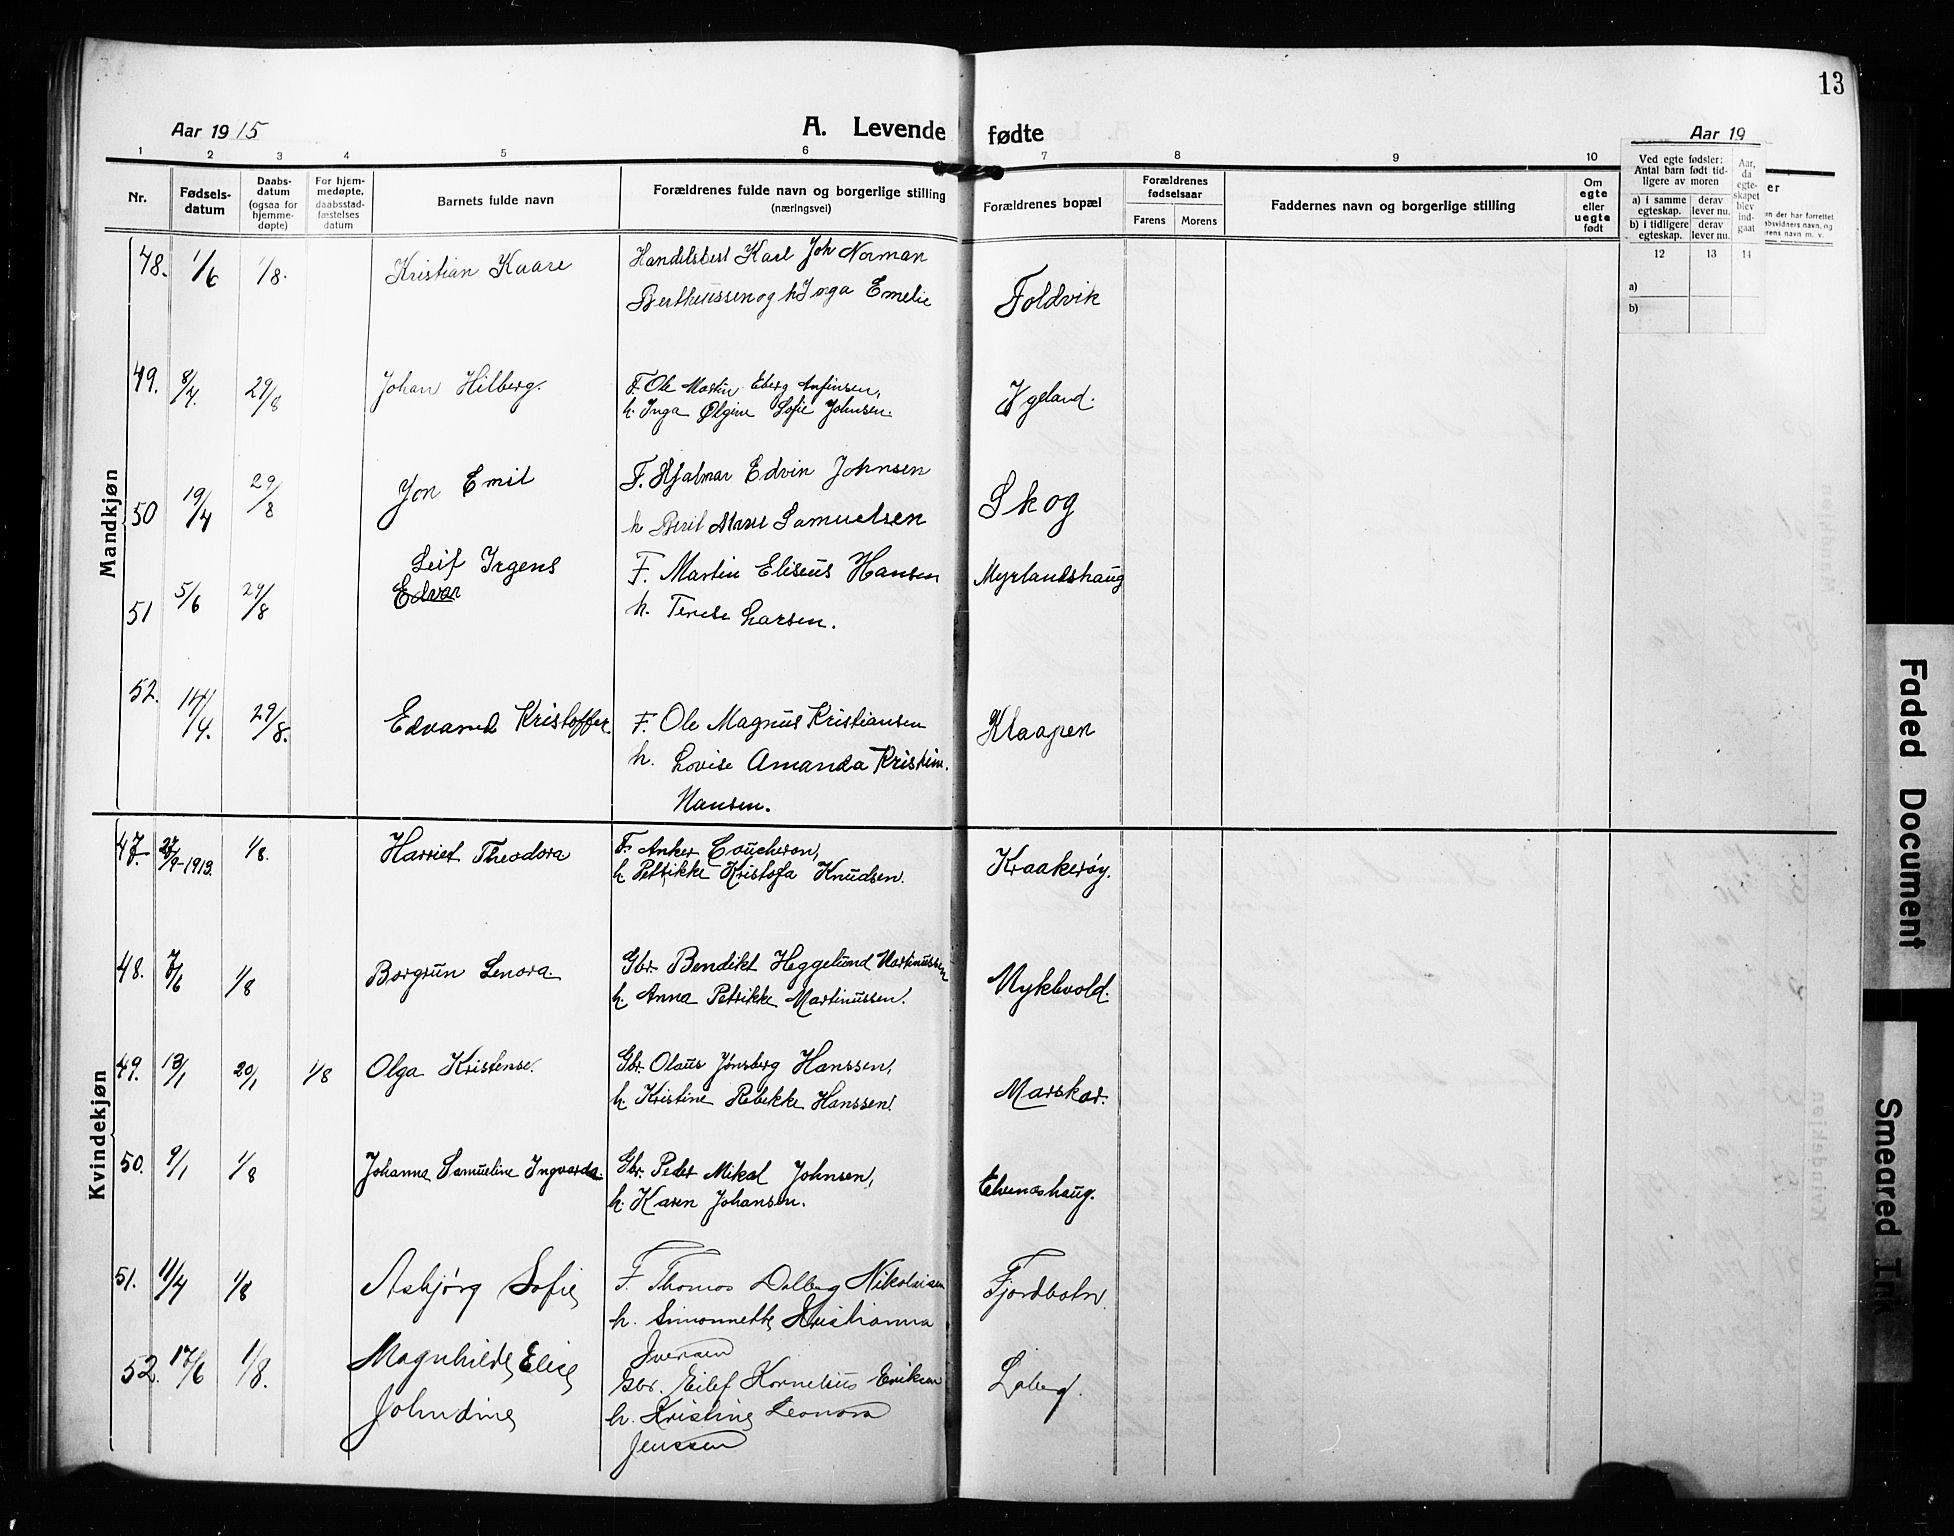 13
Aar 1915
A. Levende fødte
Aar 19
1 2 3 4 5 6 7 8 9 10
Nr.
Fødsels-
datum
Daabs-
datum
(ogsaa for
hjemme-
døpte)
For hjem-
medøpte,
daabsstad-
fæstelses
datum
Barnets fulde navn
Forældrenes fulde navn og borgerlige stilling
(næringsvei)
Forældrenes bopæl
Forældrenes
fødselsaar
Farens Morens
Faddernes navn og borgerlige stilling
Om
egte
eller
uegte
født
Ved egte fødsler:
Antal barn født tid-
ligere av moren
a) i samme
egteskap.
derav
lever nu.
b) i tidligere
egteskap.
derav
lever nu.
Aar,
da
egte-
skapet
blev
ind-
gaat
12 13 14
a)
b)
Mandkjøn
48. 1/6 1/8. Kristian Kaare Handelsbest Karl Joh Norman
Bertheussen og h Inga Emelie Foldvik
49. 8/4. 29/8 Johan Hilberg. F. Ole Martin Eberg Anfinsen,
h. Inga Olgine Sofie Johnsen. Ygeland.
50 19/4 29/8 Jon Emil F. Hjalmar Edvin Johnsen
h Berit Marie Samuelsen Skog
51 5/6 29/8 Leif Irgens
Edvar F. Martin Eliseus Hansen
h. Terese Larsen. Myrlandshaug
52. 14/4. 29/8. Edvard Kristoffer. F. Ole Magnus Kristiansen
h. Lovise Amanda Kristine
Hansen. Klaapen
Kvindekjøn
47. 27/9-1913. 1/8. Harriet Theodora F. Anker Coucheron,
h Petrikke Kristofa Knudsen. Kraakerøy.
48. 7/6 1/8 Borgrun Lenora. Gbr. Bendikt Heggelund Martinussen
h. Anna Petrikke Martinussen. Nyklvold.
49. 13/1 20/1 1/8 Olga Kristense. Gbr. Olaus Jønsberg Hanssen,
h. Kristine Rebekke Hanssen. Marskar.
50. 9/1 1/8 Johanna Samueline Ingvarda. Gbr. Peder Mikal Johnsen,
h. Karen Johansen. Elvenæshaug.
51. 11/4 1/8 Asbjørg Sofie F. Thomas Dalberg Nikolaisen
h. Simonnette Kristianna
Iversen Fjordbotn.
52. 17/6 1/8. Magnhilde Elise
Johndine Gbr. Eilef Kornelius Eriksen
h. Kristine Leonora
Jenssen Løberg.
Faded Document
Smeared Ink